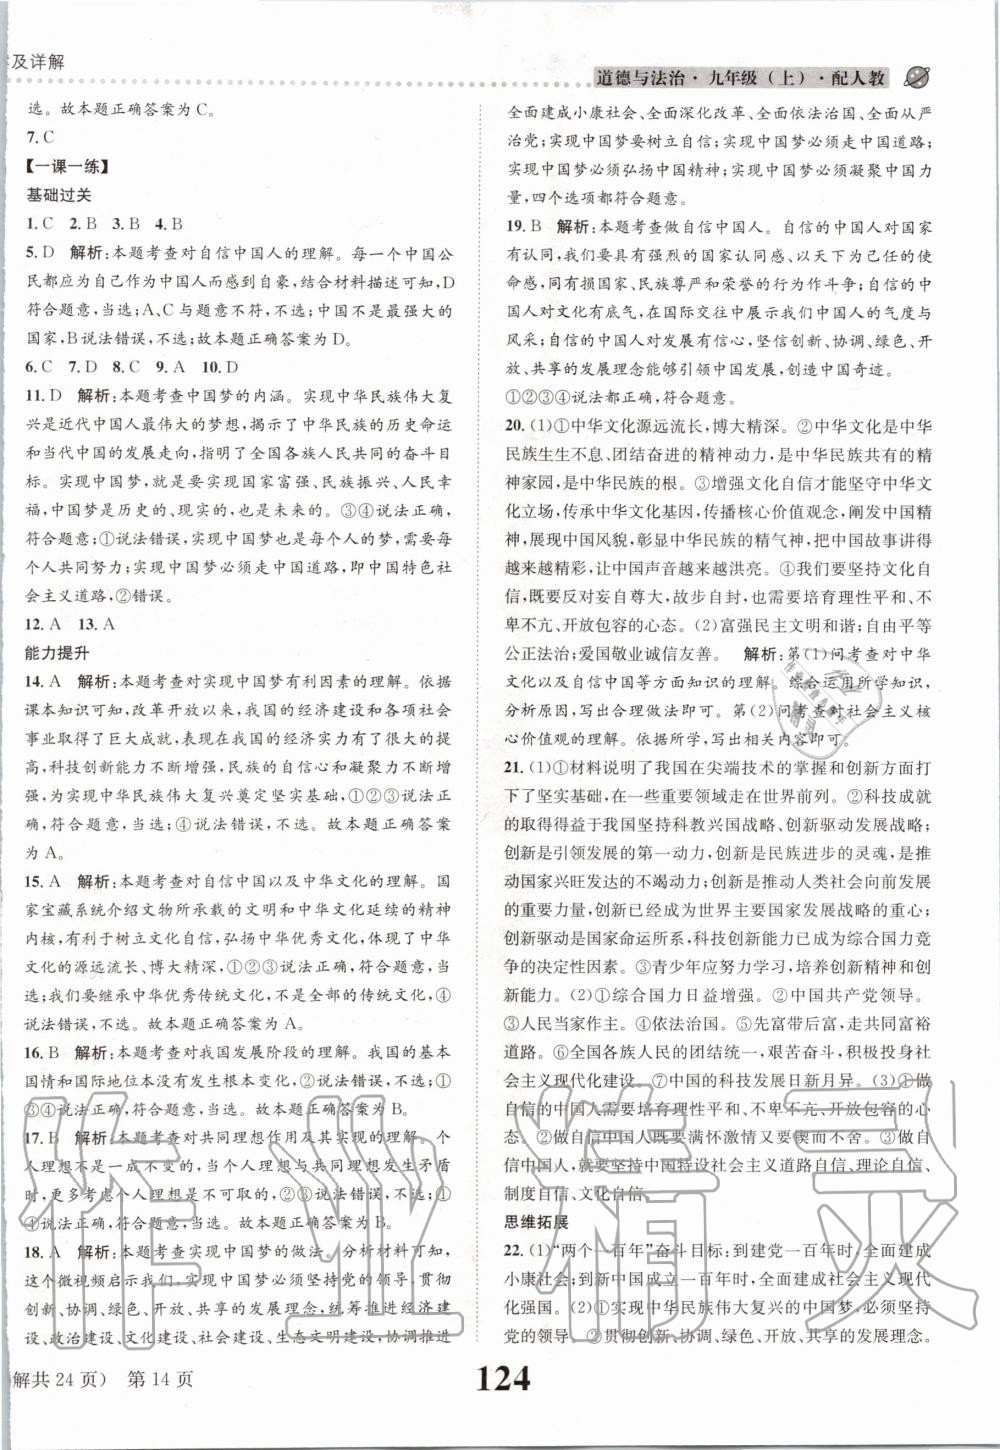 及详解
道德与法治·九年级(上)·配人教
选。故本题正确答案为 C。
7. C
【一课一练】
基础过关
1. C　2. B　3. B　4. B
5. D　解析:本题考查对自信中国人的理解。每一个中国公
民都应为自己作为中国人而感到自豪,结合材料可知,D
符合题意,当选;A、C与题意不符,不选;中国不是最强大的
国家,B说法错误,不选;故本题正确答案为 D。
6. C　7. D　8. C　9. A　10. D
11. D　解析:本题考查中国梦的内涵。实现中华民族伟大复
兴是近代中国人最伟大的梦想,揭示了中华民族的历史命运
和当代中国的发展走向,指明了全国各族人民共同的奋斗目
标。实现中国梦,就是要实现国家富强、民族振兴、人民幸
福。中国梦是历史的、现实的,也是未来的。③④说法正确,
符合题意;①说法错误,实现中国梦也是每个人的梦,需要每
个人共同努力;实现中国梦必须走中国道路,即中国特色社
会主义道路,②错误。
12. A　13. A
能力提升
14. A　解析:本题考查对实现中国梦有利因素的理解。依据
课本知识可知,改革开放以来,我国的经济建设和各项社会
事业取得了巨大成就,表现在我国的经济实力不断增强、提
高,科技创新能力不断增强,民族的创造力和凝聚力不断增
强,为实现中华民族伟大复兴奠定坚实基础,①②③说法正
确,符合题意,当选;④说法错误,不选。故本题正确答案
为 A。
15. A　解析:本题考查对自信中国以及中华文化的理解。国
家宝藏系统介绍文物所承载的文明和中华文化延续的精神
内核,有利于树立文化自信,弘扬中华优秀文化,体现了中华
文化的源远流长、博大精深,①②③说法正确,符合题意,当
选;我们要继承中华优秀传统文化,不是全部的传统文化,④
说法错误,不选。故本题正确答案为 A。
16. B　解析:本题考查对我国发展阶段的理解。我国的基本
国情和国际地位本没有发生根本变化,②说法错误,不选;①
③④说法正确,符合题意,当选。故本题正确答案为 B。
17. B　解析:本题考查对共同理想作用及其实现的理解。个
人理想不是一成不变的,当个人理想与共同理想发生矛盾
时,更多考虑个人理想是不可取的,②③说法错误,不选;①
④说法正确,符合题意,当选。故本题正确答案为 B。
18. A　解析:本题考查实现中国梦的做法。分析材料可知,
这个微视频启示我们,实现中国梦必须坚持党的领导,贯彻
创新、协调、绿色、开放、共享的发展理念,统筹推进经济建
设、政治建设、文化建设、社会建设、生态文明建设,协调推进
全面建成小康社会、全面深化改革、全面依法治国、全面从严
治党;实现中国梦要树立自信;实现中国梦必须走中国道路;
实现中国梦必须弘扬中国精神;实现中国梦必须凝聚中国力
量,四个选项都符合题意。
19. B　解析:本题考查做自信中国人。自信的中国人对国家
有认同,所以我们要具有强烈的国家认同感,以天下为己任的使命
感,同有损国家、民族尊严和荣誉的行为作斗争;自信的中
国人对文化有底气,在国际交往中展示我们中国人的气度与
风采;自信的中国人对发展有信心,坚信创新、协调、绿色、开
放、共享的发展理念能够引领中国发展,创造中国奇迹。
①②③④说法都正确,符合题意。
20. (1)①中华文化源远流长,博大精深。②中华文化是中华
民族生生不息、团结奋进的精神动力,是中华民族共有的精
神家园,是中华民族的根。③增强文化自信才能坚守中华文
化立场,传承中华文化基因,传播核心价值观念,阐发中国精
神,展现中国风貌,彰显中华民族的精气神,把中国故事讲得
越来越精彩,让中国声音越来越洪亮。④我们要坚持文化自
信,既要反对妄自尊大,故步自封,也要培育理性平和、不骄
不卑不亢、开放包容的心态。(2)富强民主文明和谐;自由平等
公正法治;爱国敬业诚信友善。　解析:第(1)问考查中华
文化以及自信中国等方面知识的理解。综合运用所学知识,
分析原因,写出合理做法即可。第(2)问考查对社会主义核
心价值观的理解。依据所学,写出相关内容即可。
21. (1)①材料说明了我国在尖端技术的掌握和创新方面打
下了坚实基础,在一些重要领域走在世界前列。②科技成就
的取得得益于我国坚持科教兴国战略、创新驱动发展战略;
创新是引领发展的第一动力,创新是民族进步的灵魂,是推
动国家兴旺发达的不竭动力;创新是推动人类社会向前发展
的重要力量,创新已经成为世界主要国家发展战略的重心;
创新驱动是国家命运所系,科技创新能力已成为综合国力竞
争的决定性因素。③青少年应努力学习,培养创新精神和创
新能力。(2)①综合国力日益增强。②中国共产党领导。
③人民当家作主。④依法治国。⑤先富带后富,走共同富裕
道路。⑥全国各族人民的团结统一,艰苦奋斗,积极投身社
会主义现代化建设。⑦中国的科技发展日新月异。(3)①做
自信的中国人需要培育理性平和、不卑不亢、开放包容的心
态。②做自信的中国人需要满怀激情又要锲而不舍。③做自
信中国人,就要坚持中国特设社会主义道路自信、理论自信、
制度自信、文化自信。
思维拓展
22. (1)“两个一百年”奋斗目标:到建党一百年时,全面建成
小康社会;到新中国成立一百年时,全面建成社会主义现代
化强国。(2)①实现中华民族伟大复兴的中国梦,必须坚持
党的领导。②贯彻创新、协调、绿色、开放、共享的发展理念。
解共 24 页)　第 14 页
124
作业精灵